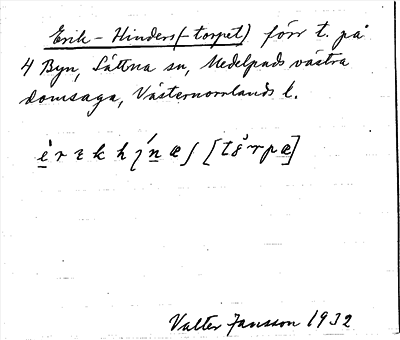 Erik-Hinders(-torpet) förr t. på
4 Byn, Sättna sn, Medelpads västra
domsaga, Västernorrlands l.
Valter Jansson 1932